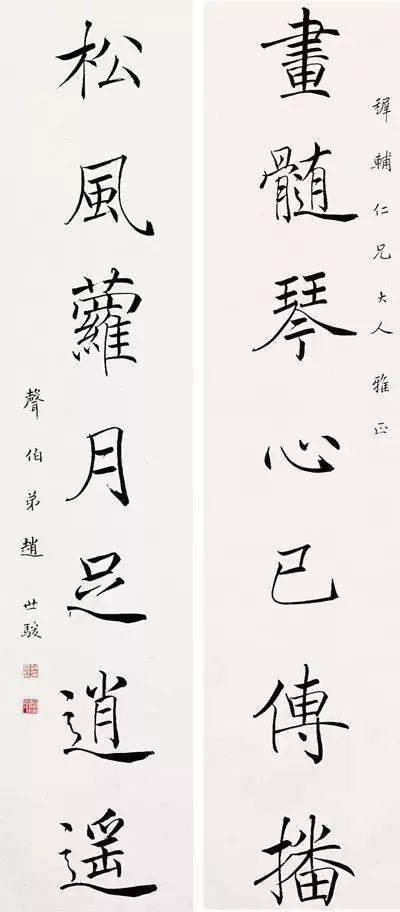 輔仁兄大人雅正
畫髓琴心已傳播
松風蘿月足逍遥
聲伯弟趙世駿